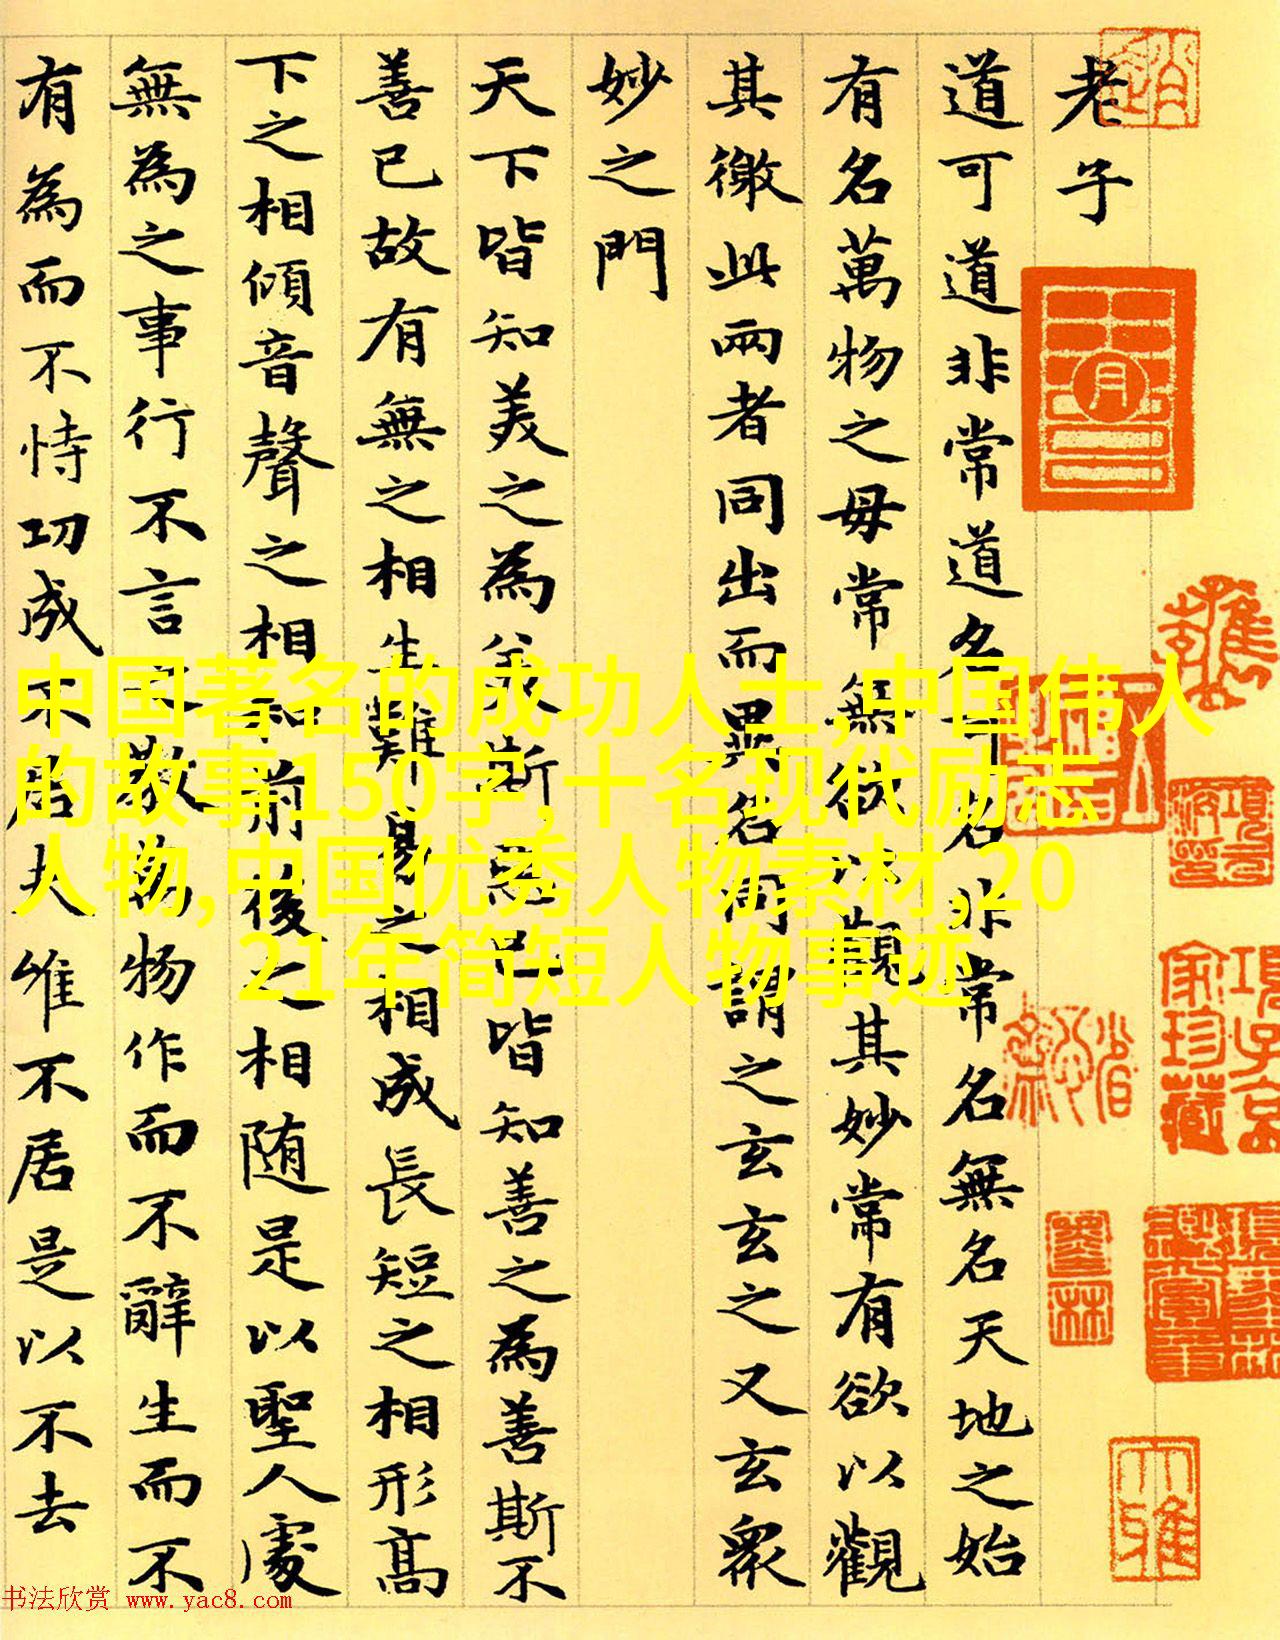 老子
道可道非常道名可名非常名無名天地之始
有名萬物之母常無欲以觀其妙常有欲以觀
其徼此兩者同出而異名同謂之玄玄之又玄衆
妙之門
天下皆知美之為美斯惡已皆知善之為善斯不
善已故有無之相生難易之相成長短之相形高
下之相傾音聲之相和前後之相随是以聖人處
無為之事行不言之教萬物作而不辭生而不
有為而不恃功成不居夫唯不居是以不去
項子京
家珍藏
中国著名的成功人士,中国伟人
的故事150字,十名现代励志
人物,中国优秀人物素材,20
21年简短人物事迹
书法欣赏 www.yac8.com